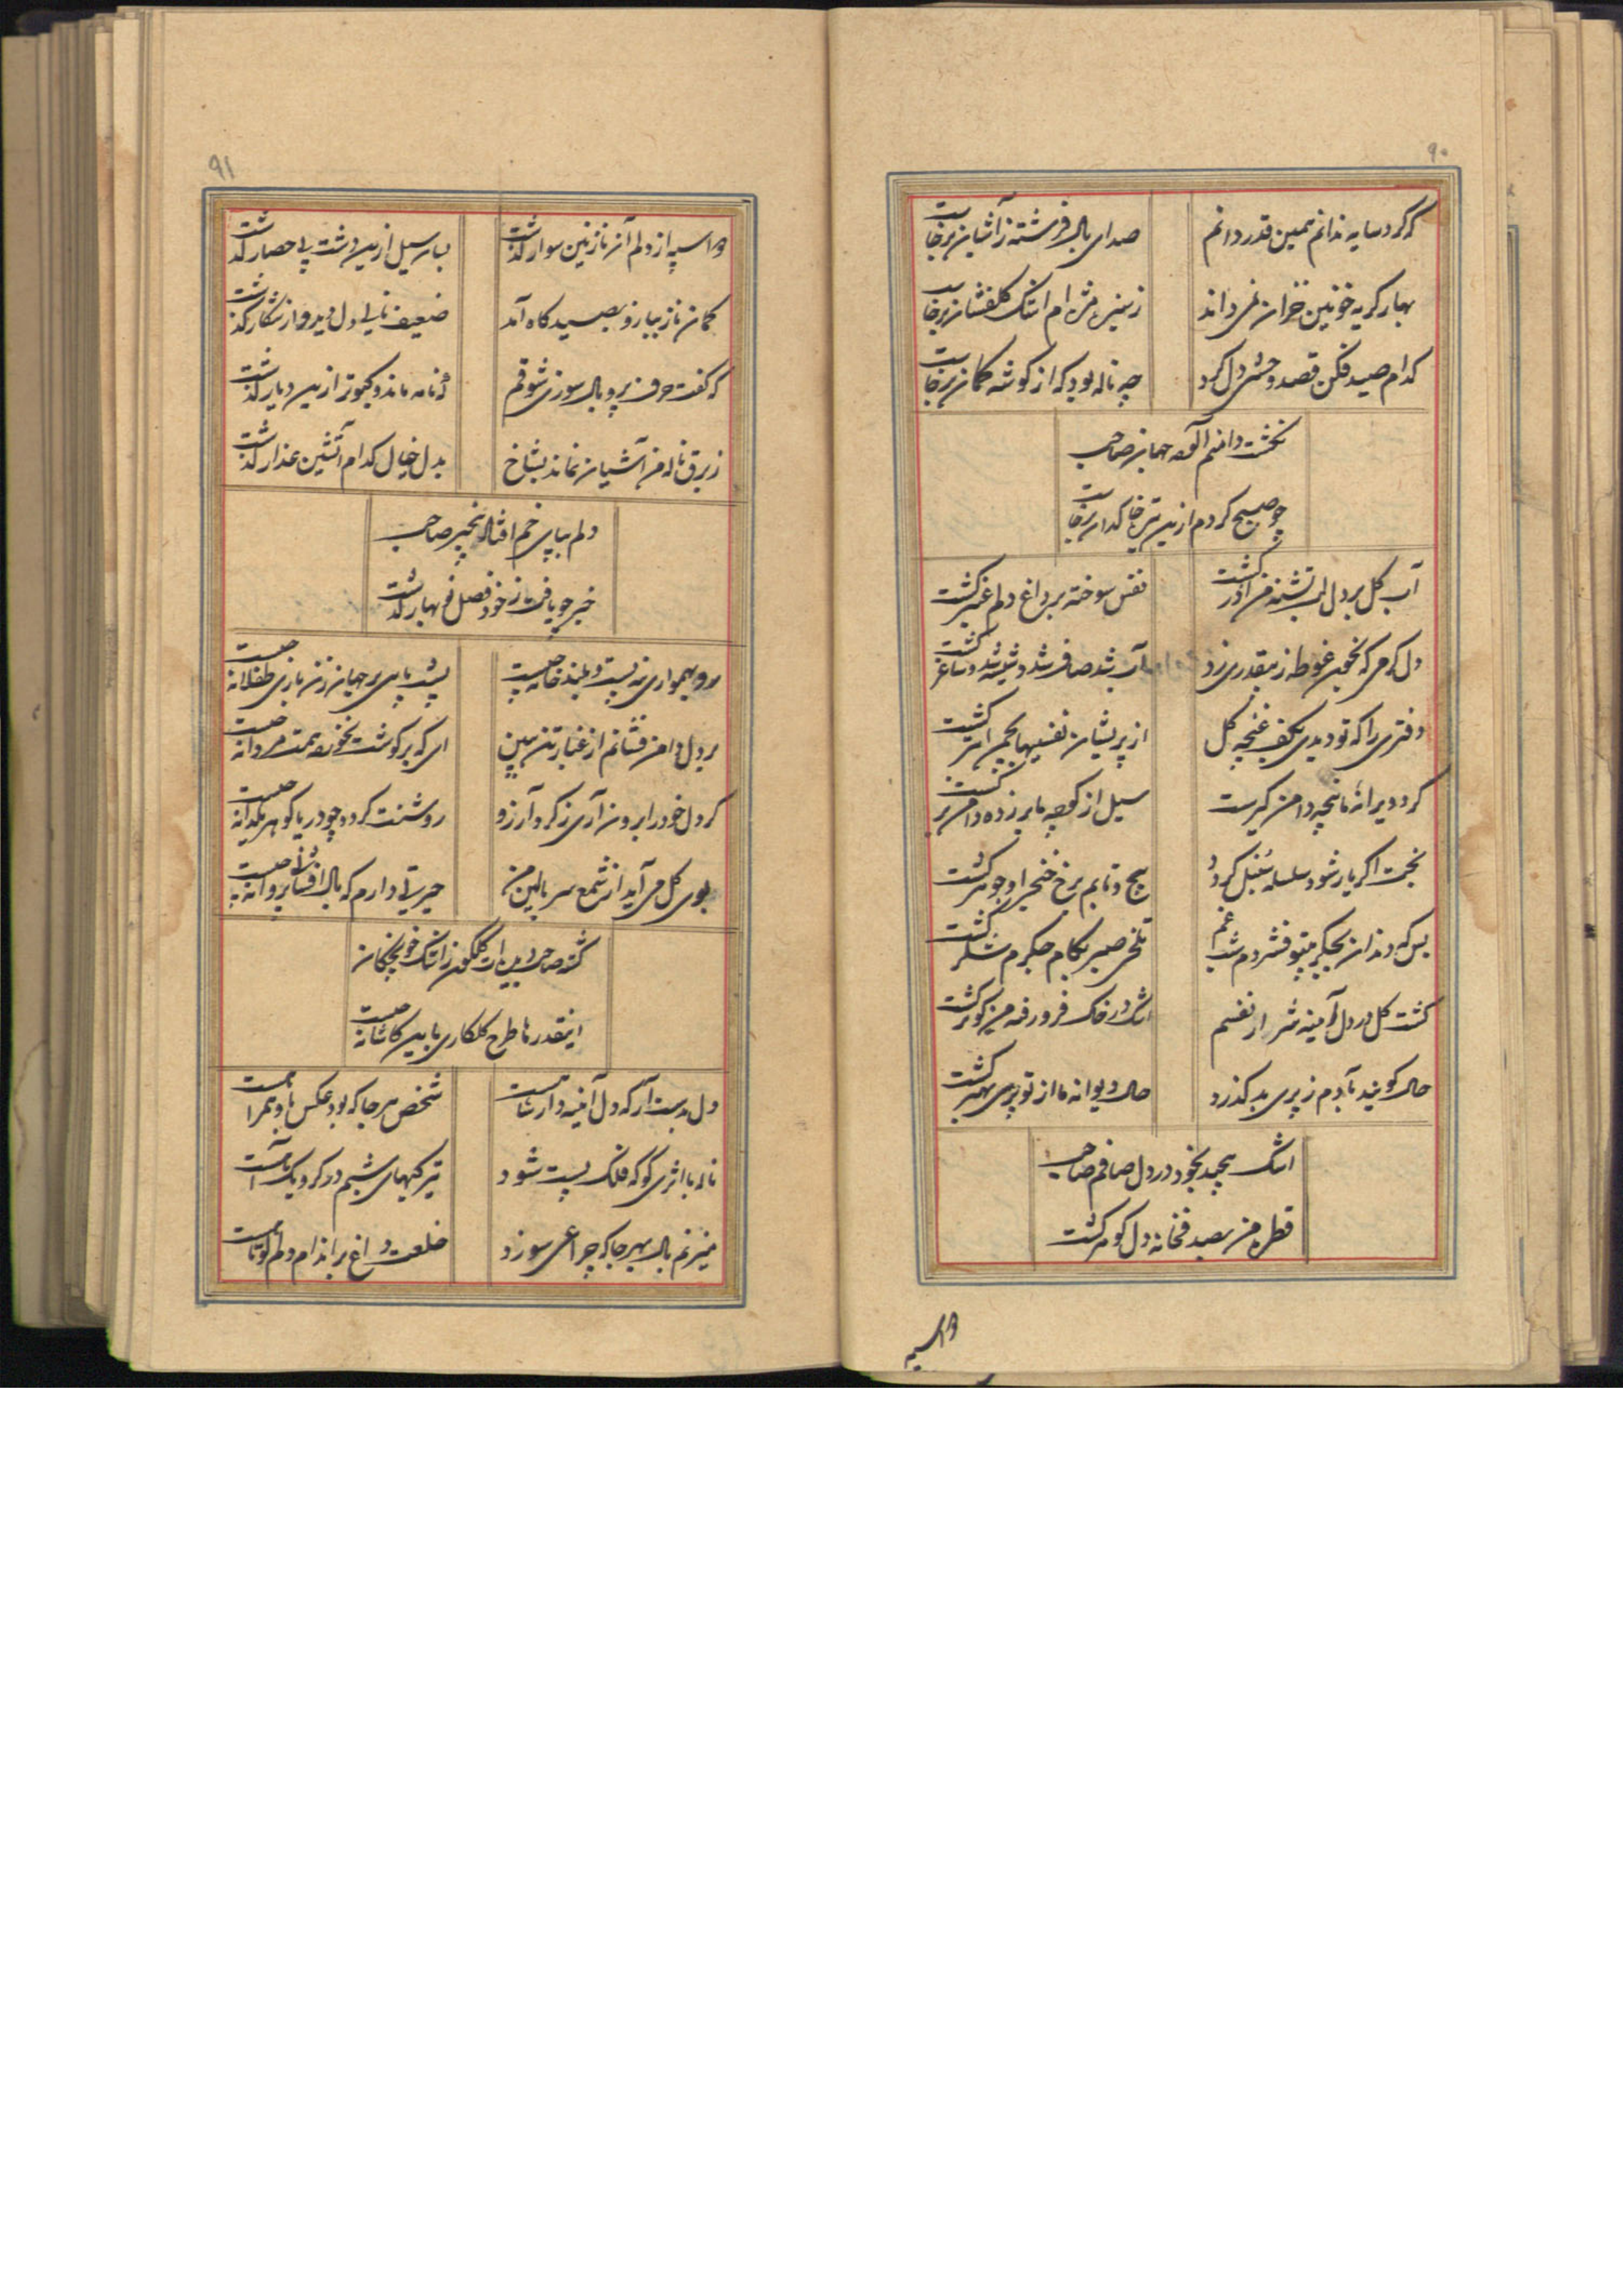 ۹۰
که کرد سایه ندانم همین قدر دانم
صدای بال فرشته ز آشیان برخاست
بهار گریه خونین خزان نمی داند
زمین مژه ام اشک گلفشان برخاست
کدام صید فکن قصد وحشی دل کرد
چه ناله بود که از گوشه کمان برخاست
نخست دانم آلوده جهان صاحب
چو صبح کردم ازین تیره خاکدان برخاست
آب گل بر دل لب تشنه من آذر گشت
نفس سوخته بر داغ دلم عنبر گشت
دل که می که بخون غوطه ز بیقدری زد
آب شد صاف شد و شیشه شد و ساغر گشت
دفتری را که تو دیدی بکف غنچه گل
از پریشان نفسیها بچمن ابتر گشت
گرد ویرانه ما پنجه دامن گیرست
سیل از کوچه ما بر زده دامن بر گشت
بخت اگر یار شود سلسله سنبل گردد
پیچ و تابم برخ خنجر او جوهر گشت
بس که دندان بجگر بیتو فشردم شب غم
تلخی صبر بکام جگرم شکر گشت
گشت گل در دل آیینه شرار از نفسم
اشک در خاک فرو رفته من گوهر گشت
حال گویند بآدم ز پری بد گذرد
حال دیوانه ما از تو پری بهتر گشت
اشک پیچید بخود در دل صافم صاحب
قطره من بصدفخانه دل گوهر گشت
واسیه
۹۱
واسیه از دلم آن نازنین سوار گذشت
بسان سیل ازین دشت بی حصار گذشت
کمان ناز بیازو بصیدگاه آمد
ضعیف نالی دل دید و از شکار گذشت
که گفت حرف پر و بال سوزی شوقم
که نامه ماند و کبوتر ازین دیار گذشت
ز برق ناله من آشیان نماند بشاخ
بدل خیال کدام آتشین عذار گذشت
دلم بپای خم افتاد بیخبر صاحب
خبر چو یافت ز خود فصل نو بهار گذشت
رو بهمواری نه پست و بلند خانه چیست
پشت پا بر جهان زن بازی طفلانه چیست
بر دل دامن فشانم از غبار تن ببین
ای که برگوشت نخورده همت مردانه چیست
گر دل خود را برون آری ز گرد آرزو
روشنت گردد چو دریا گوهر یکدانه چیست
بوی گل می آید از شمع سر بالین من
حیرتی دارم که بال افشانی پروانه چیست
گشته صاحب دیده ات گلگون ز اشک خونچکان
اینقدرها طرح گلکاری باین کاشانه چیست
دل بدست آر که دل آینه دار شماست
شخص هر جا که بود عکس باو همراست
ناله با اثری کو که فلک پست شود
تیرگیهای شبم در گرو یک آهست
میزنم بال بهر جا که چراغی سوزد
خلعت داغ بر اندام دلم کوتاهست